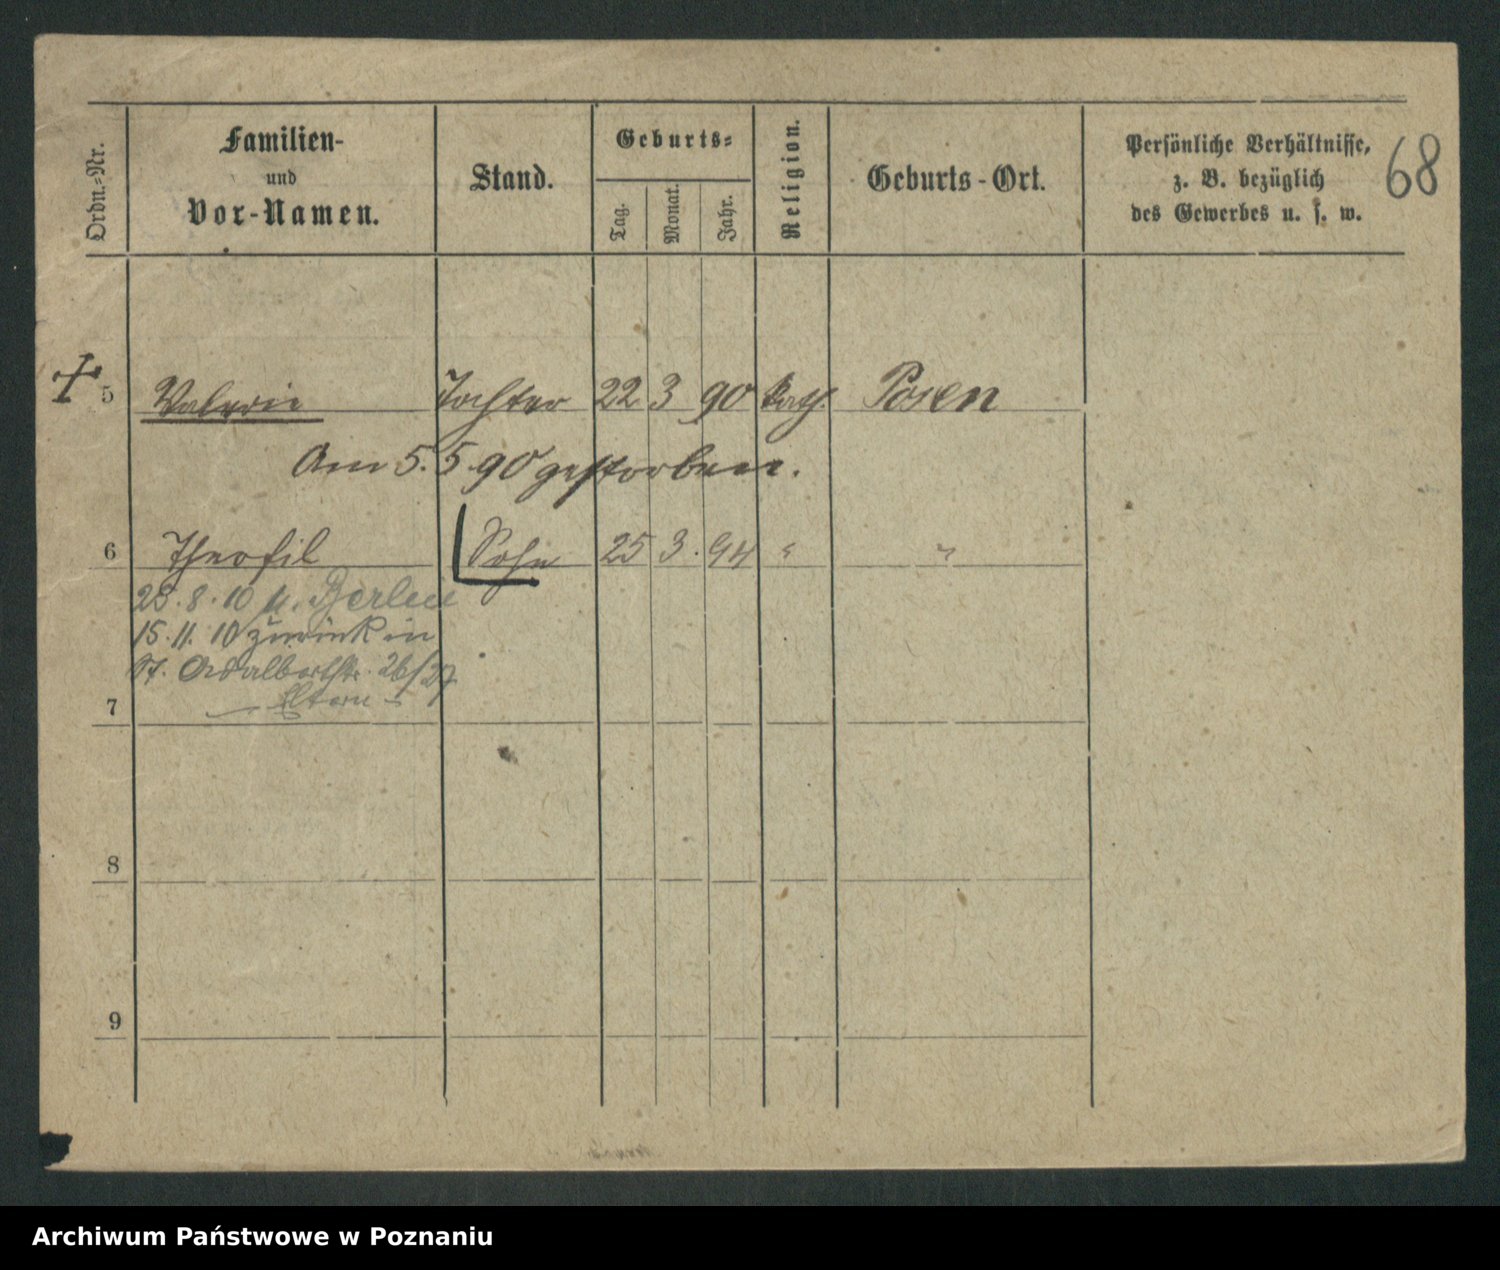 68
Ordn.-Nr.
Familien-
und
Vor-Namen.
Stand.
Geburts-
Tag.
Monat.
Jahr.
Religion.
Geburts-Ort.
Persönliche Verhältnisse,
z. B. bezüglich
des Gewerbes u. s. w.
5 Valerie Tochter 22 3 90 kath. Posen
Am 5. 5. 90 gestorben.
6 Theofil Sohn 25 3. 94 " "
28. 8. 10 n. Berlin
15. 11. 10 zurück in
St. Adalbertstr. 26/27
— Eltern —
7
8
9
Archiwum Państwowe w Poznaniu